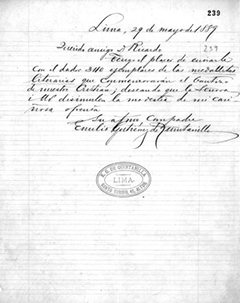 239
Lima, 29 de mayo de 1889
Querido amigo D. Ricardo
239
Tengo el placer de enviarle
con el dador 240 ejemplares de las medallitas
literarias que conmemoran el bautizo
de nuestro Cristian, deseando que la Señora
i Ud disimulen la modestia de mi cari
ñosa ofrenda
Su afmo Compadre
Emilio Gutiérrez de Quintanilla
E. G. DE QUINTANILLA
LIMA